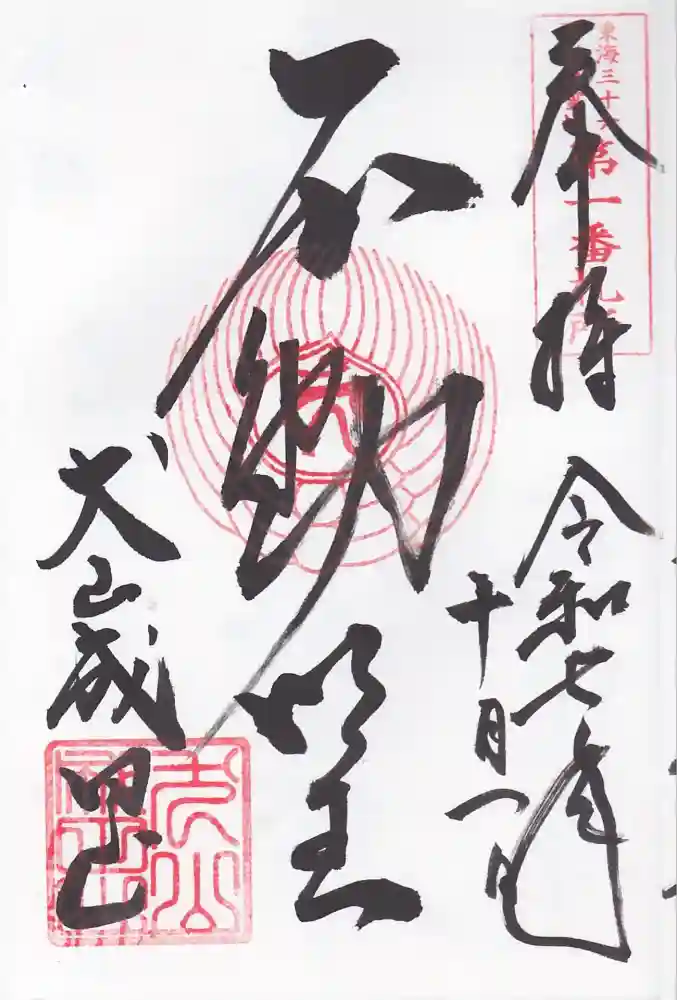 東海三十六
第一番札所
奉拝
令和七年
十月一日
不動明王
犬山成田山